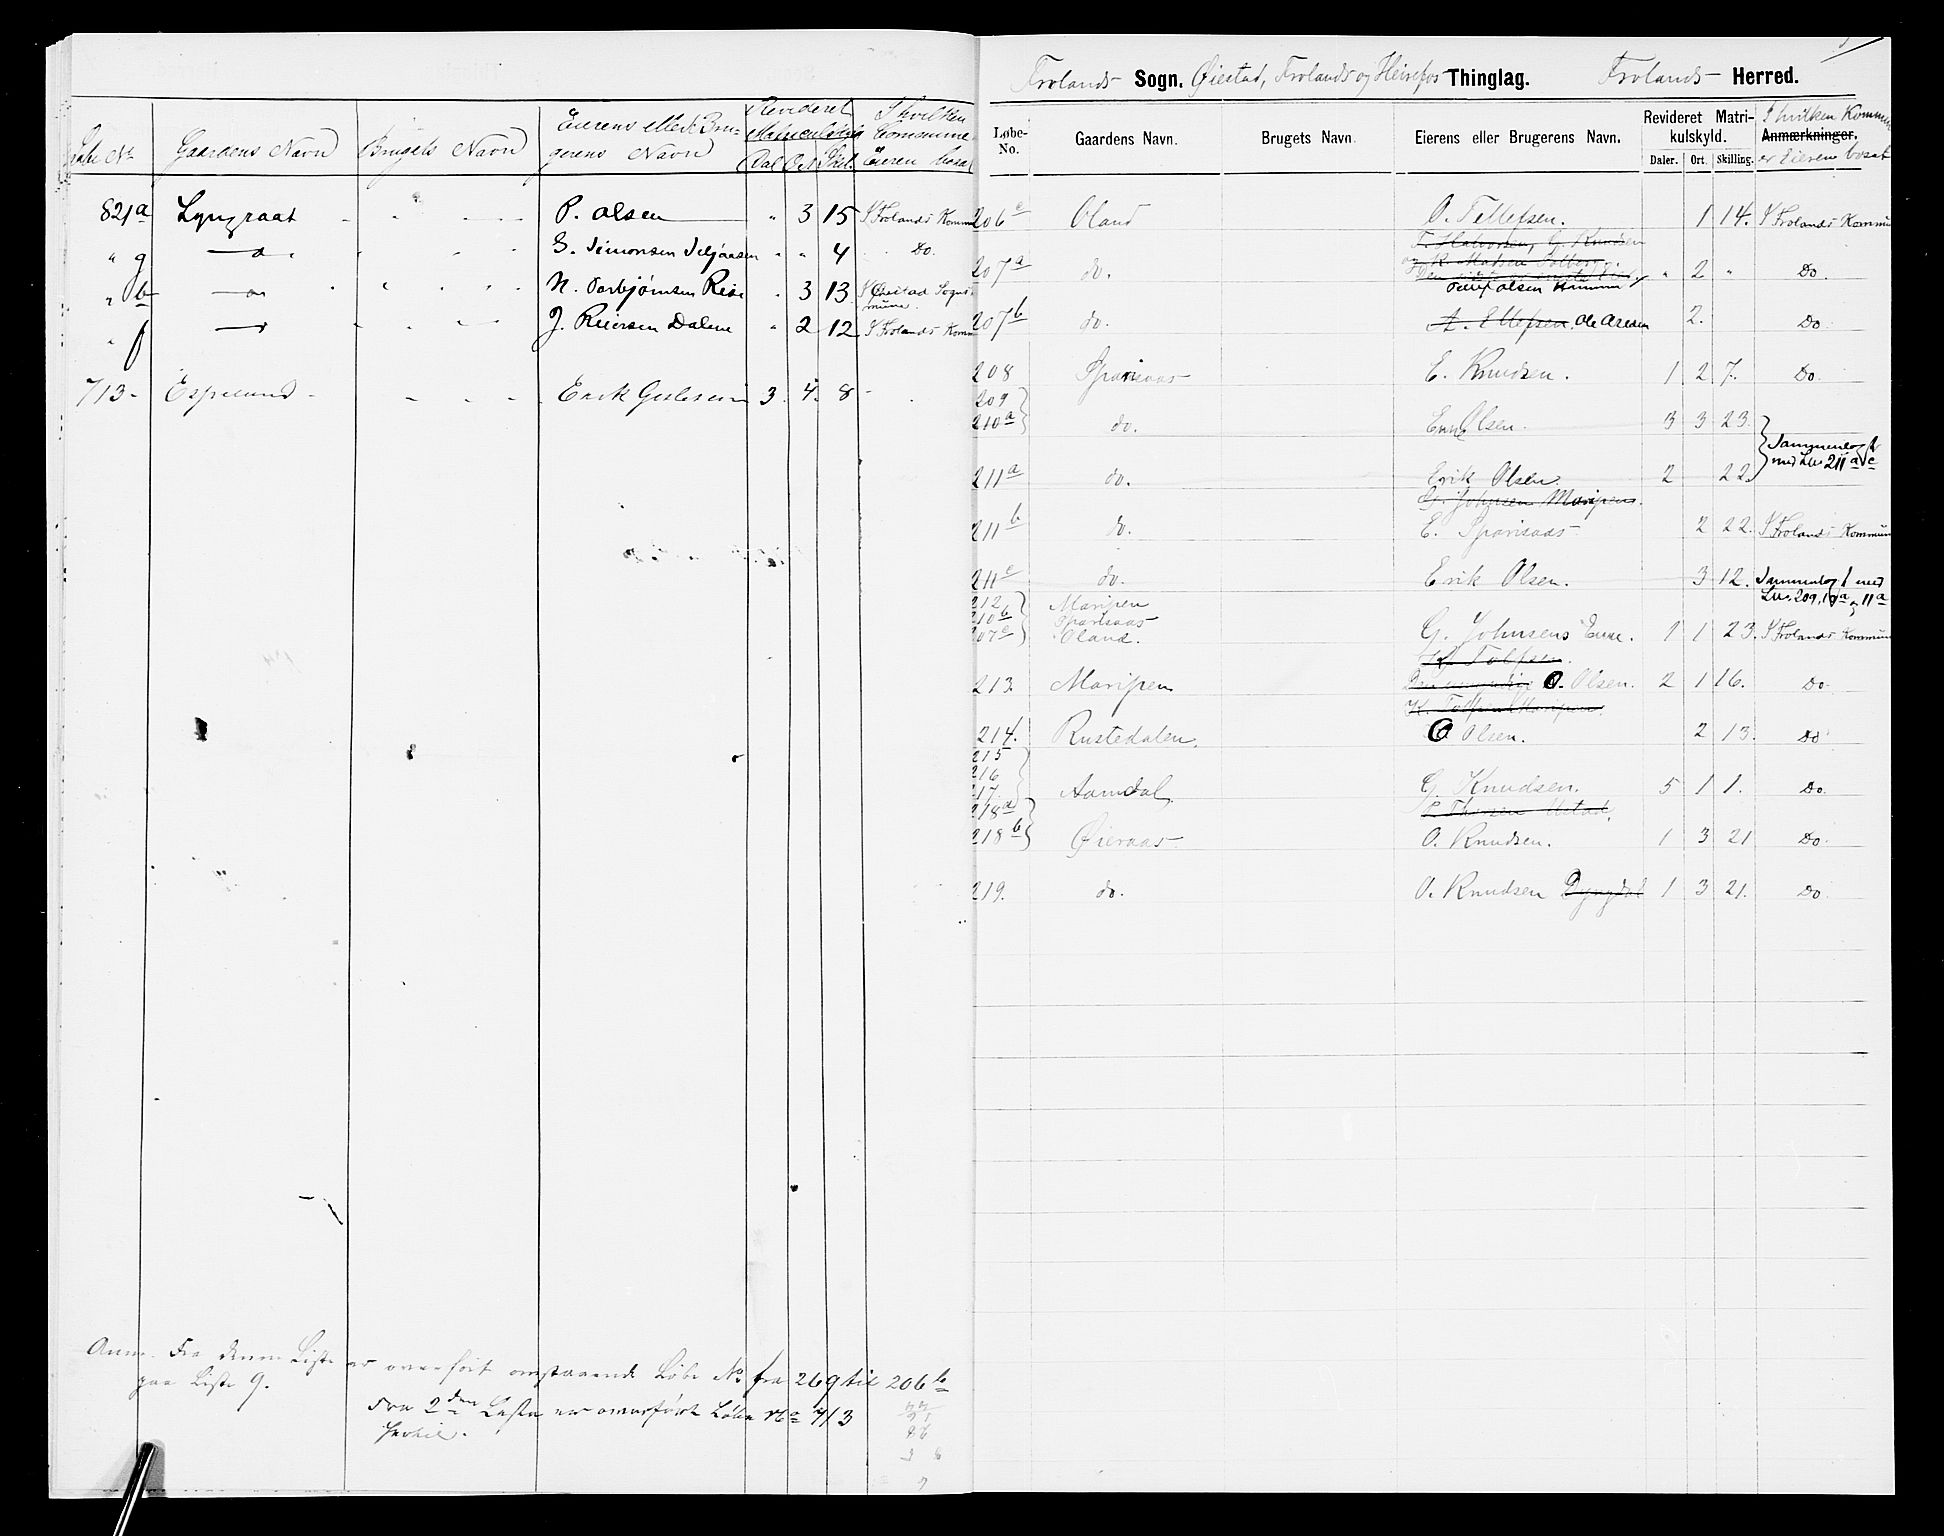 Løbe No Gaardens Navn Brugets Navn Eierens eller Bru-
gerens Navn Revideret
Dal Ort Skil. I hvilken
Commune
Eieren bosat
821a P. Olsen 3 15 I Frolands Komm
" g do. S. Simonsen " " 4 Do.
" b do N. Torbjørnsen Rise " 3 13
" f do J. Reiersen Dalene " 2 12 I Frolands Komm
713 - Espelund - Erik 3. 4. 8
Anm. Fra denne Liste er overført omstaaende Løbe No fra 269 til 206b
paa Liste 9.
Fra 2den Liste er overført Løbe No 713
hertil.
Frolands Sogn. Øiestad, Frolands og Heirefos Thinglag. Frolands Herred.
Løbe-
No. Gaardens Navn. Brugets Navn. Eierens eller Brugerens Navn. Revideret Matri-
kulskyld.
Daler. Ort. Skilling. I hvilken Kommun
Anmærkninger.
er Eieren bosat
206c Oland O. Tellefsen. 1 14. I Frolands Kommun
T. Halvorsen, G. Knudsen
207a do. " 2 " Do
Olsen
207b do. A. Ellefsen. Ole 2. Do
208 Sparsaas E. Knudsen. 1 2 7. Do
209
210a do. Olsen. 3 3 23.
Sammenlagt
med Lno 211 a & c
211a do. Erik Olsen. 2 22.
G. Johnsen Maripen.
211b do. E. Sparsaas 2 22. I Frolands Kommun
211c do. Erik Olsen. 3 12. Sammenlagt med
Lno. 209, 10a & 11a
212 Maripen
210b Sparsaas
207c Oland. G. Johnsens Enke. 1 1 23. I Frolands Kommun
213. Maripen O. Olsen. 2 1 16. Do
214. Rustedalen. O Olsen. 2 13 Do
215
216
217 Aamdal. G. Knudsen. 5 1 1. Do
218a
218b Øieraas O. Knudsen. 1 3 21 Do
219. do. O. Knudsen Dyngdal 1 3 21. Do